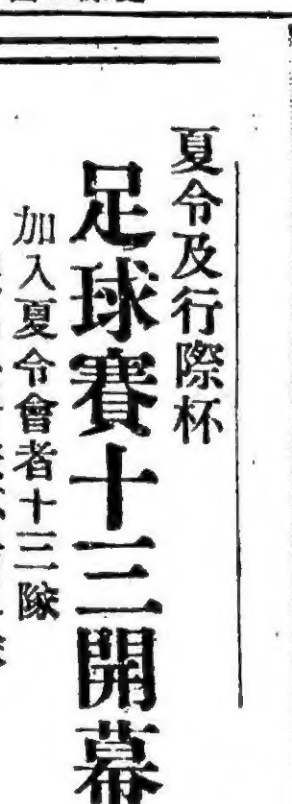 夏令及行際杯
足球賽十三開幕
加入夏令會者十三隊